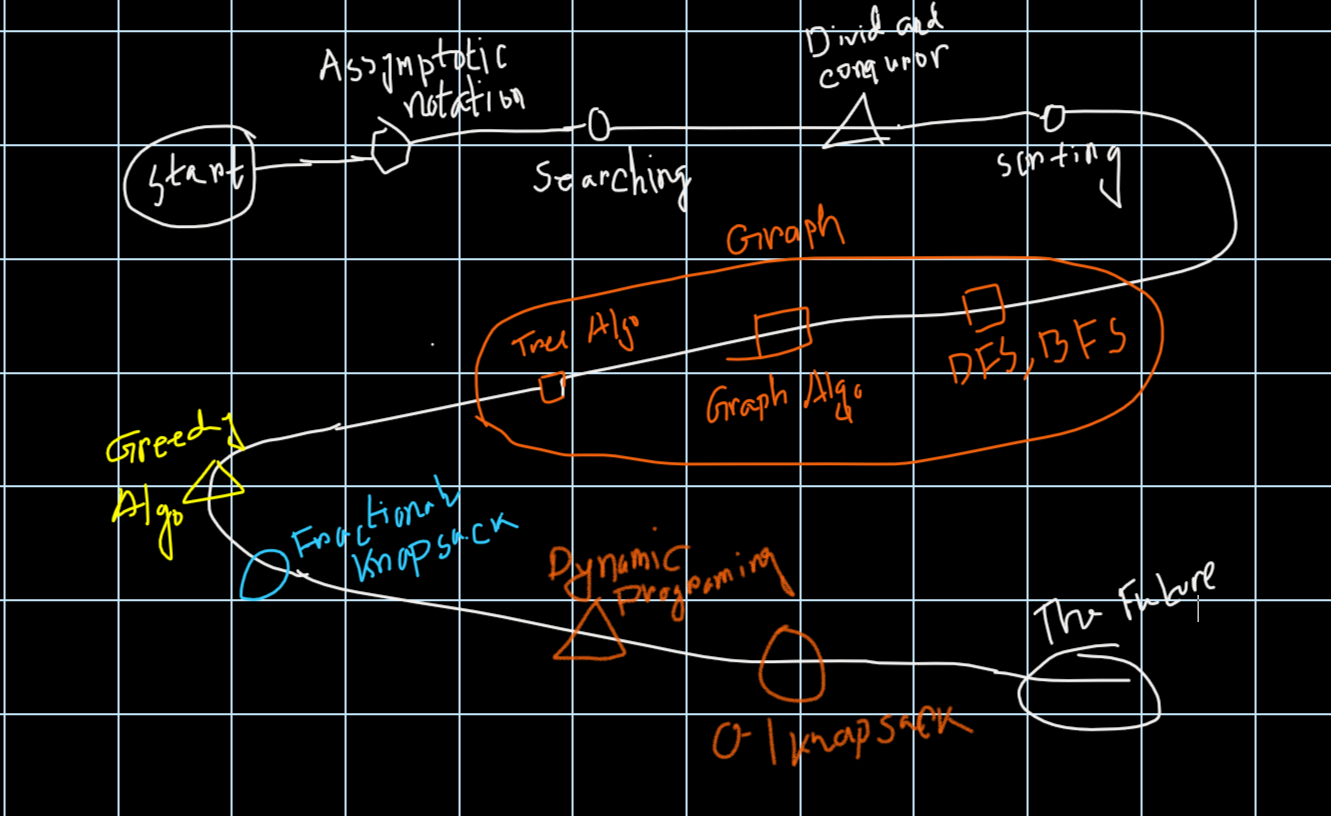 Assymptotic
notation
Divid and
conquror
start
Searching
sorting
Graph
Tree Algo
Graph Algo
DFS, BFS
Greedy
Algo
Fractional
Knapsack
Dynamic
Programing
0-1 knapsack
The Future